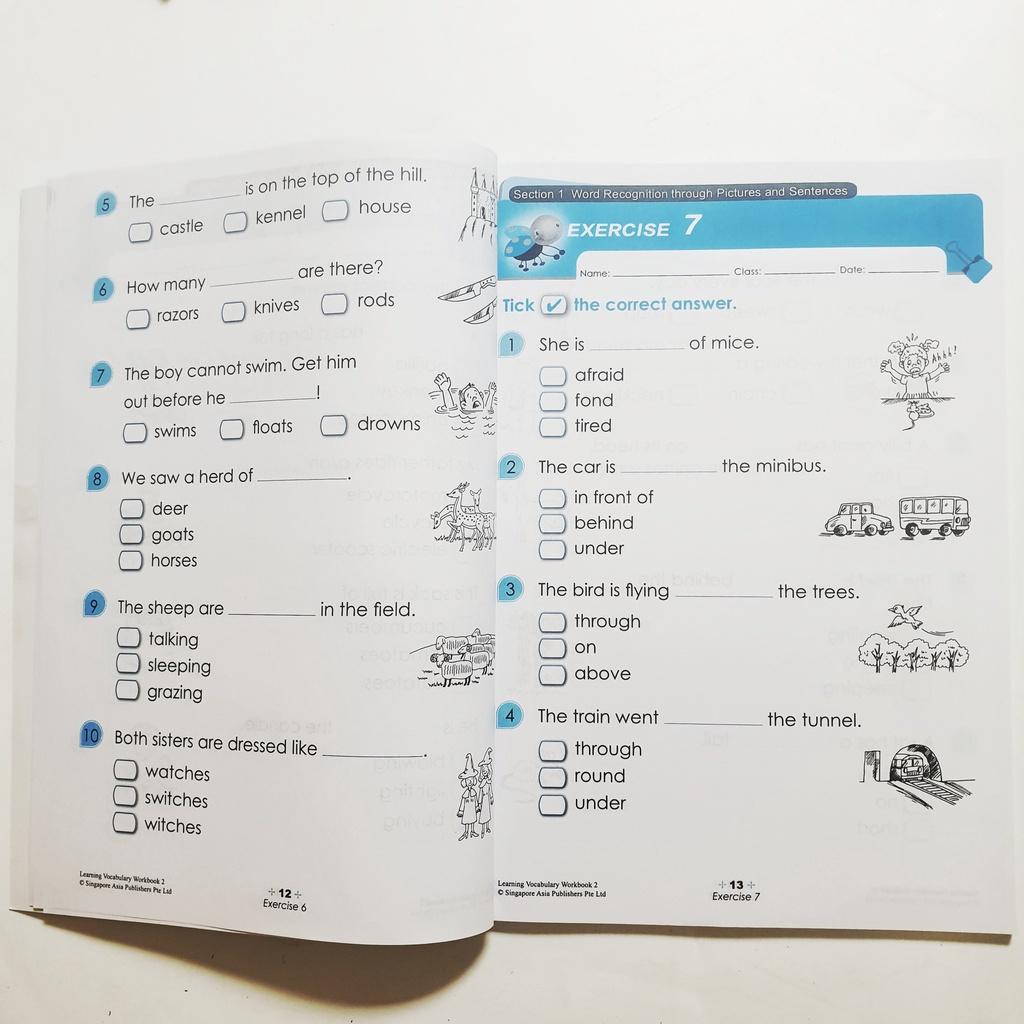 5 The __________ is on the top of the hill.
castle kennel house
6 How many __________ are there?
razors knives rods
7 The boy cannot swim. Get him
out before he __________!
swims floats drowns
8 We saw a herd of __________.
deer
goats
horses
9 The sheep are __________ in the field.
talking
sleeping
grazing
10 Both sisters are dressed like __________.
watches
switches
witches
Learning Vocabulary Workbook 2
© Singapore Asia Publishers Pte Ltd
÷ 12 ÷
Exercise 6
Section 1 Word Recognition through Pictures and Sentences
EXERCISE 7
Name: __________ Class: __________ Date: __________
Tick ✓ the correct answer.
1 She is __________ of mice.
afraid
fond
tired
Ahhh!
2 The car is __________ the minibus.
in front of
behind
under
3 The bird is flying __________ the trees.
through
on
above
4 The train went __________ the tunnel.
through
round
under
Learning Vocabulary Workbook 2
© Singapore Asia Publishers Pte Ltd
÷ 13 ÷
Exercise 7